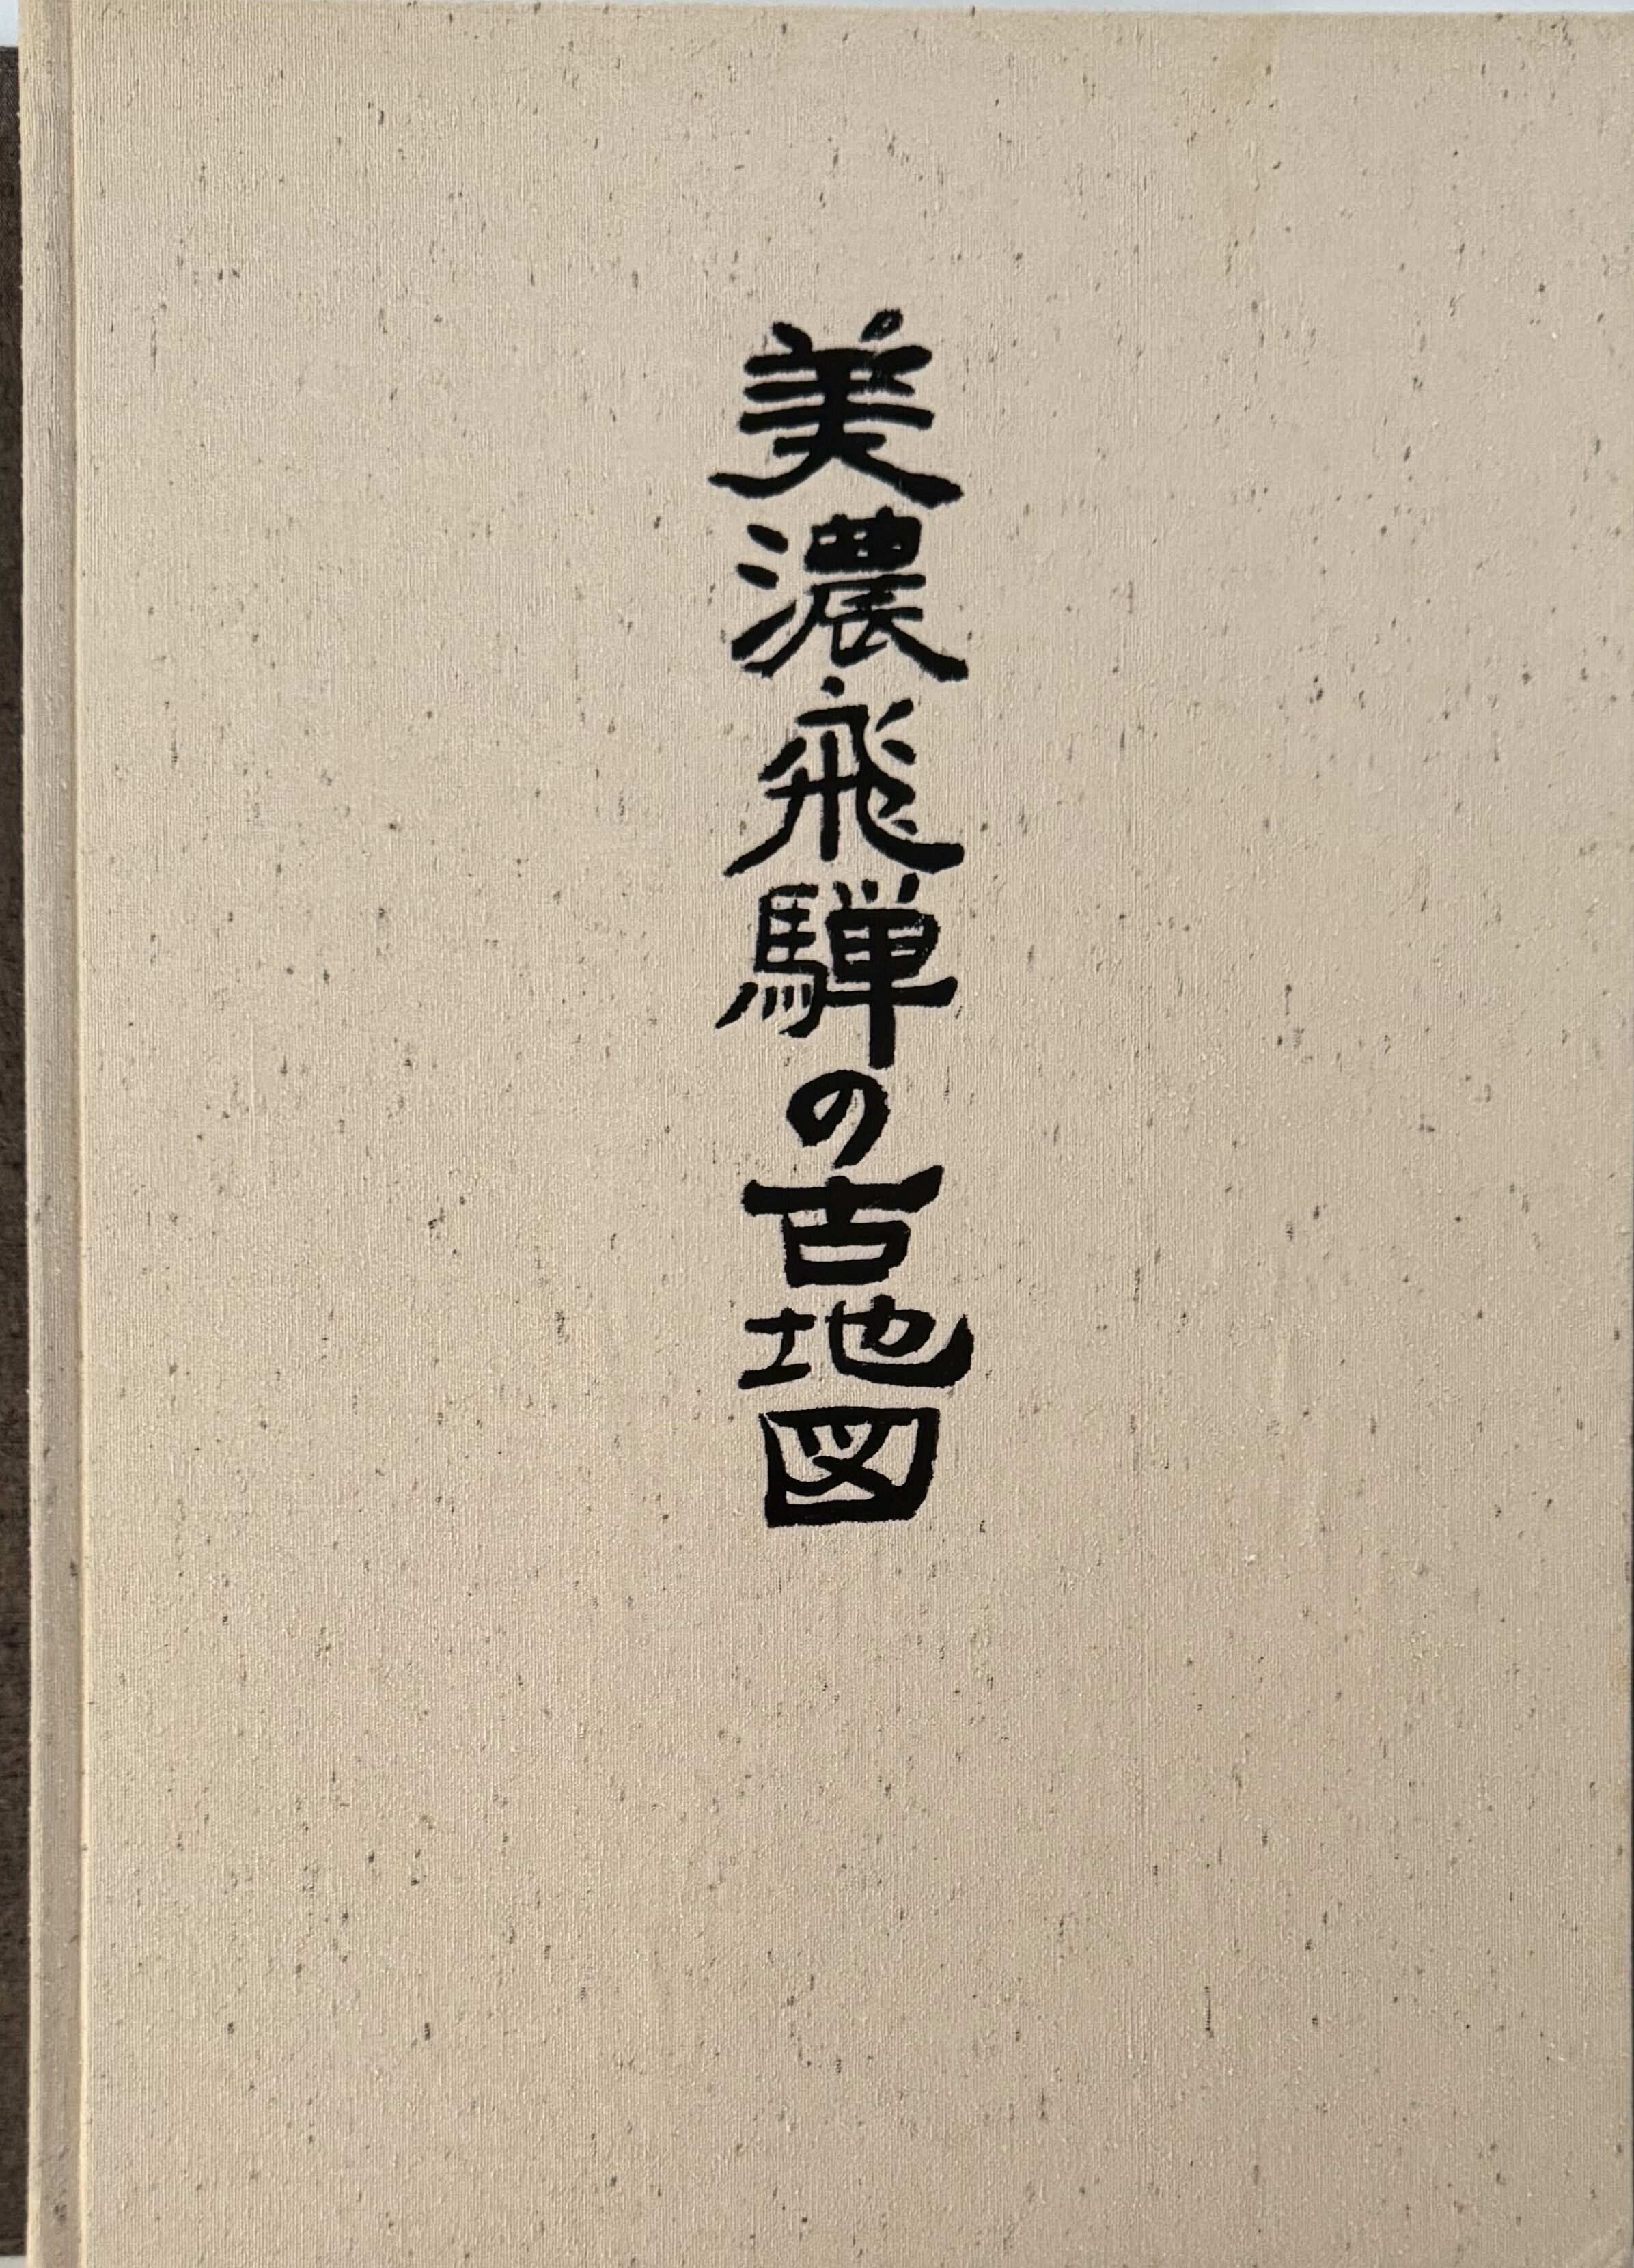 美濃飛騨の古地図